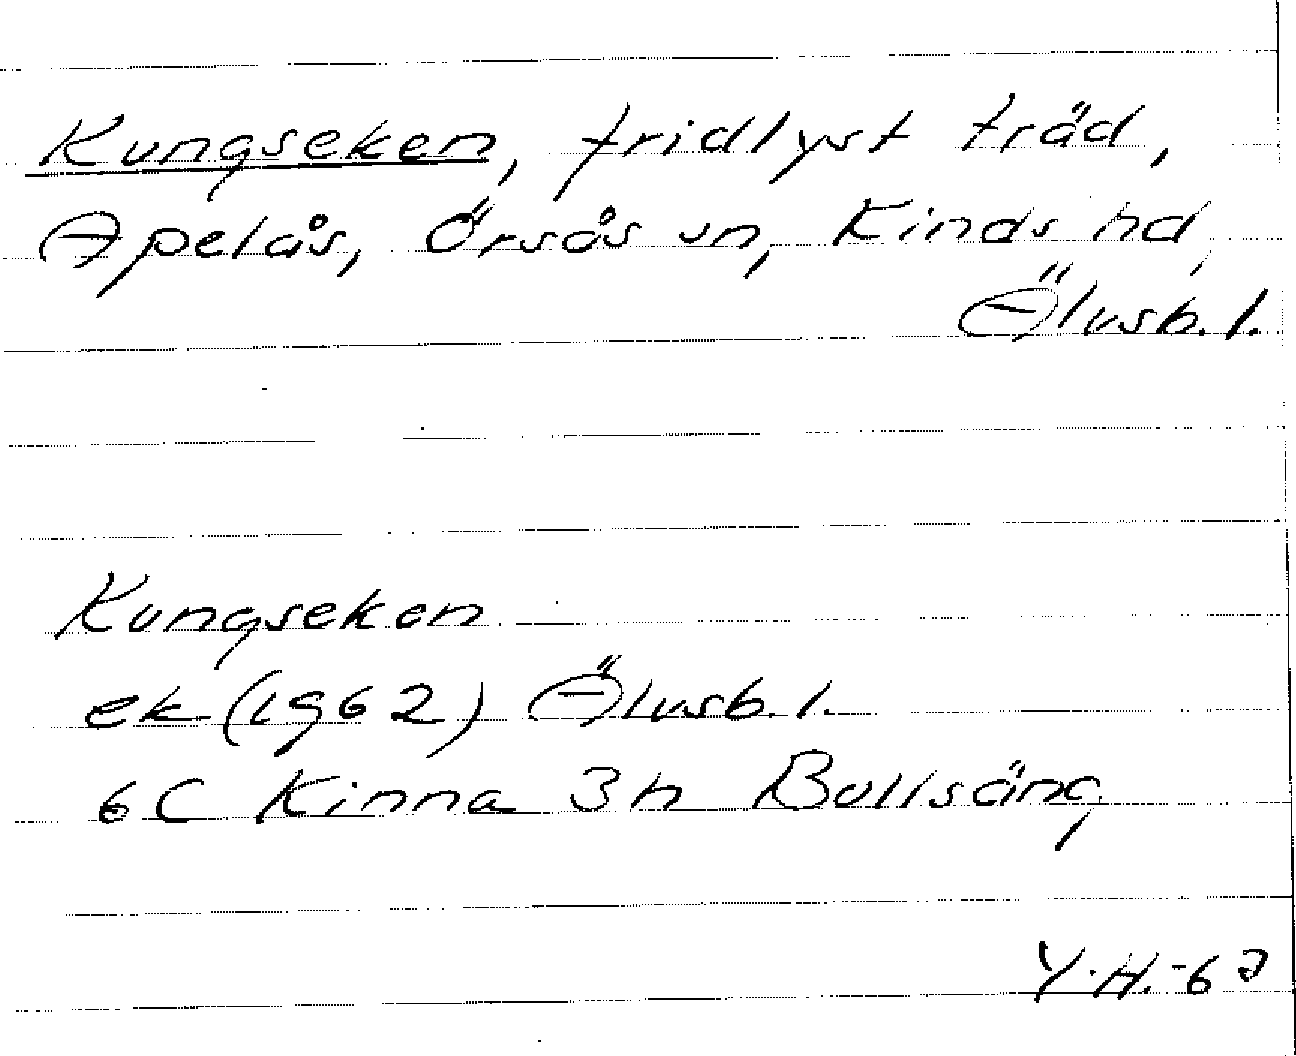 Kungseken, fridlyst träd,
Apelås, Örsås sn, Kinds hd,
Älvsb. l.
Kungseken
ek (1962) Älvsb. l.
6C Kinna 3h Bullsäng